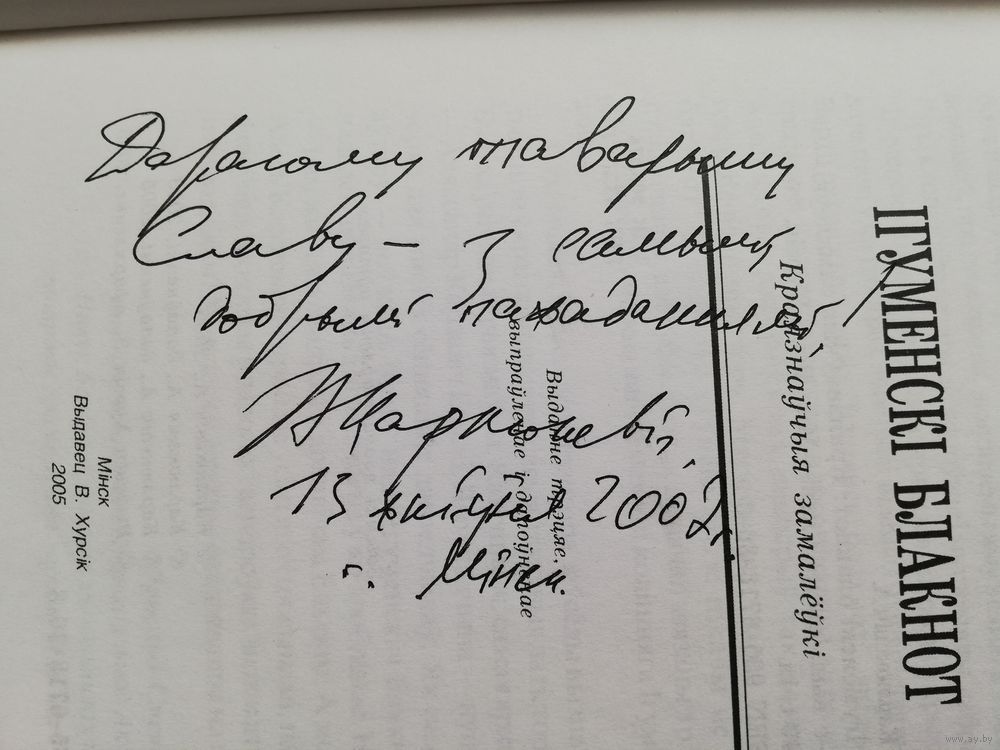 Дарагому таварышу
Славу – з самымі
добрымі пажаданнямі!
13 жніўня 200
г. Мінск.
ІГУМЕНСКІ БЛАКНОТ
Краязнаўчыя замалёўкі
Выданне трэцяе,
выпраўленае і дапоўненае
Мінск
Выдавец В. Хурсік
2005
www.ay.by